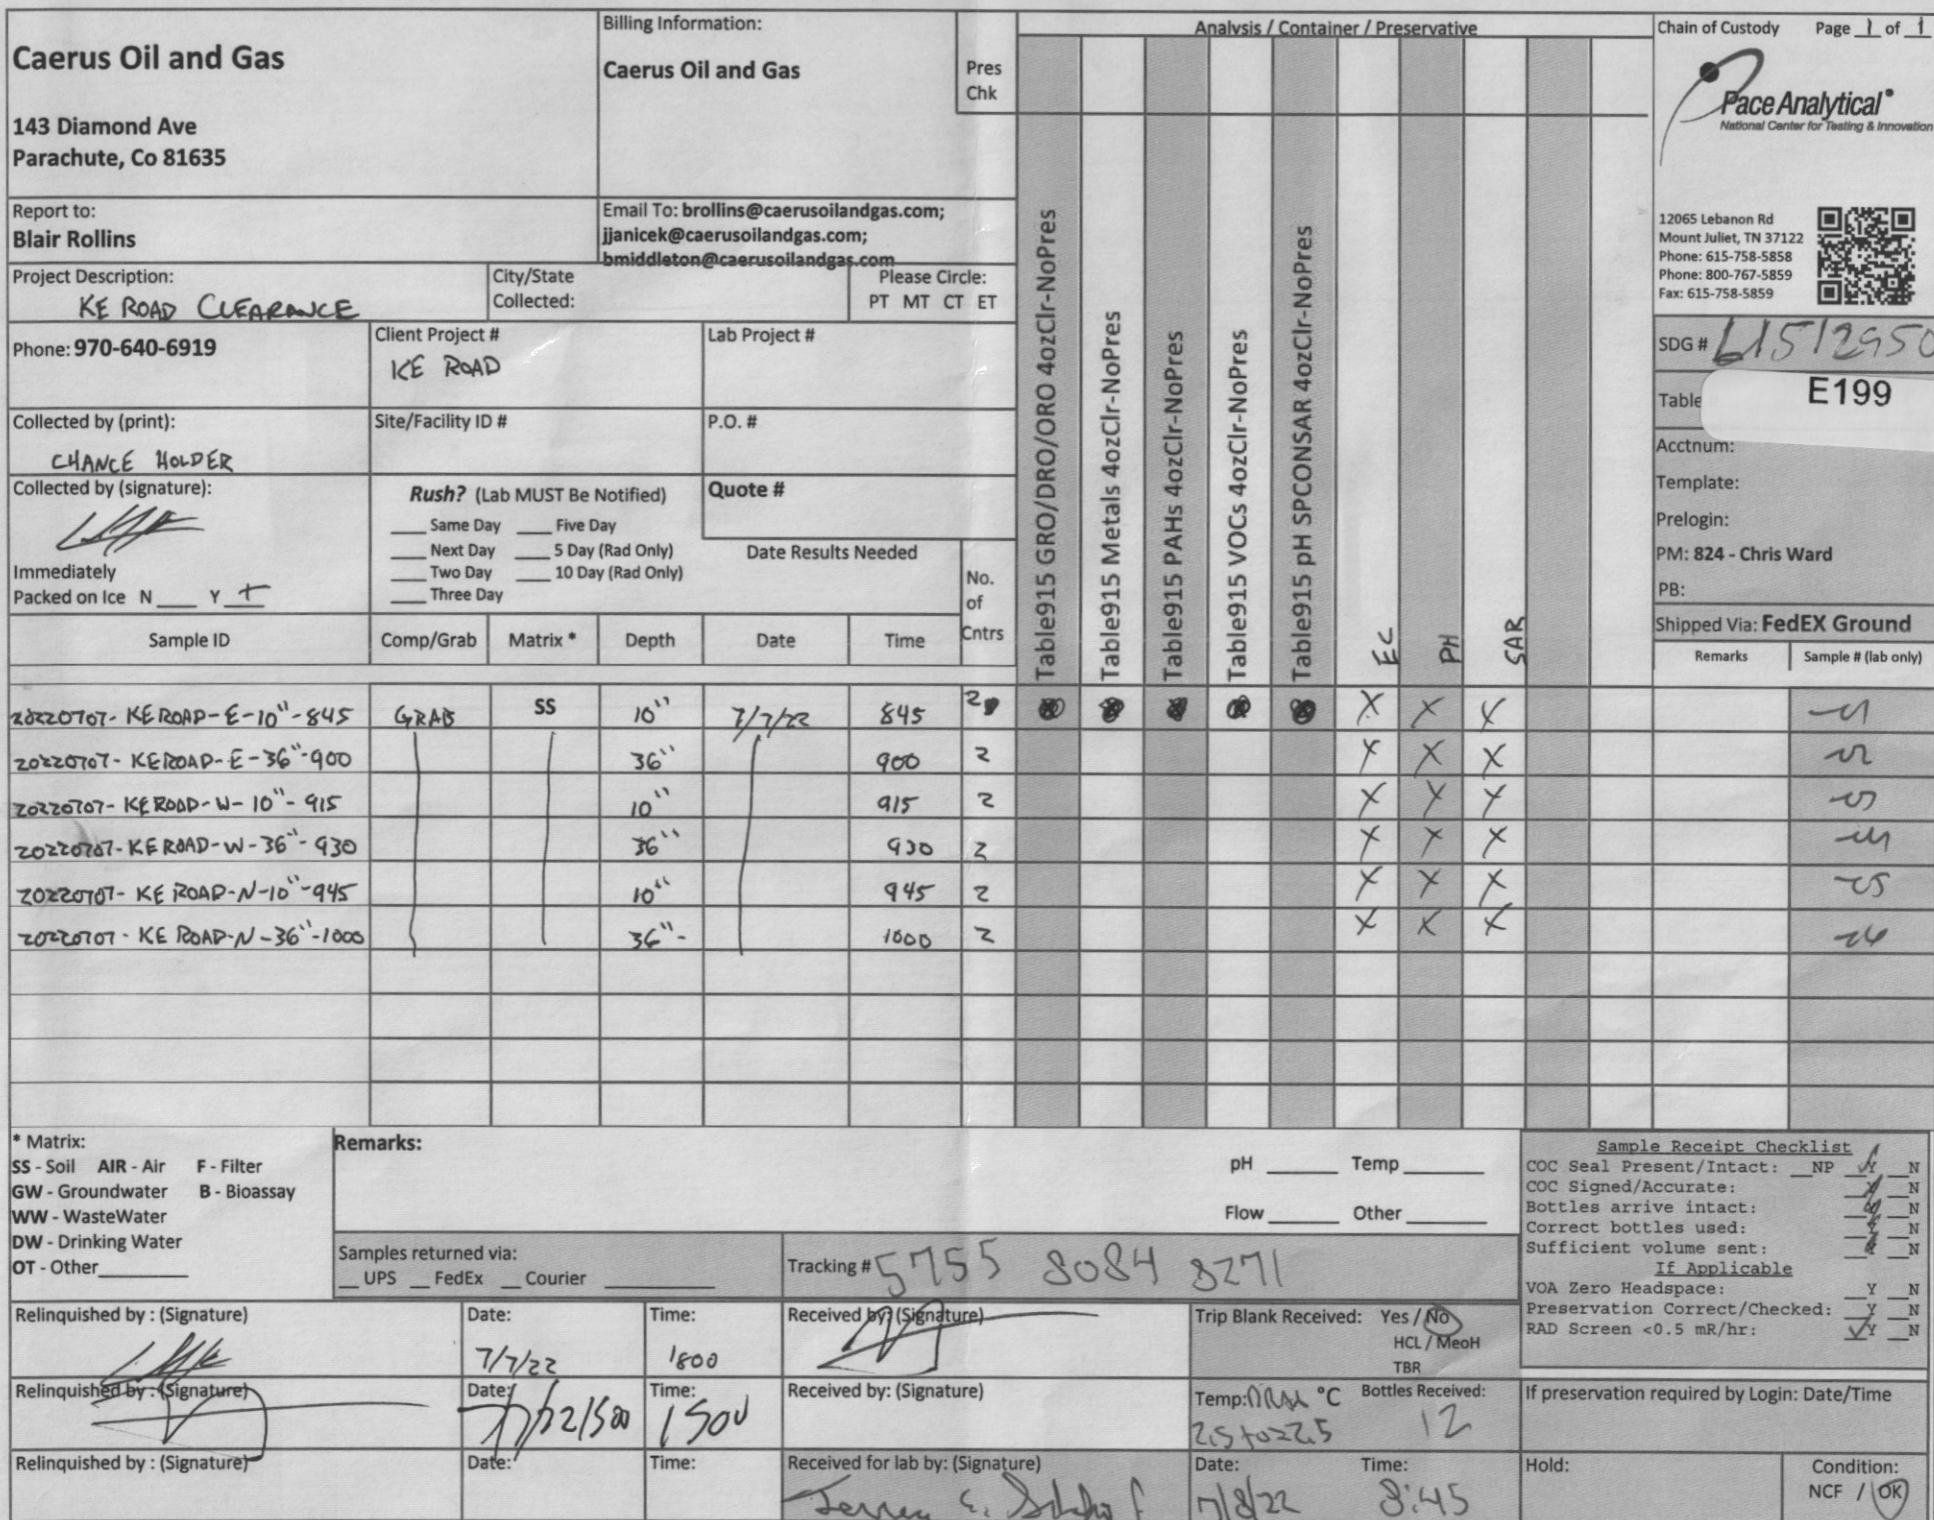 Caerus Oil and Gas
143 Diamond Ave
Parachute, Co 81635
Billing Information:
Caerus Oil and Gas
Pres
Chk
Analysis / Container / Preservative
Chain of Custody Page 1 of 1
Pace Analytical®
National Center for Testing & Innovation
12065 Lebanon Rd
Mount Juliet, TN 37122
Phone: 615-758-5858
Phone: 800-767-5859
Fax: 615-758-5859
Report to:
Blair Rollins
Email To: brollins@caerusoilandgas.com;
jjanicek@caerusoilandgas.com;
bmiddleton@caerusoilandgas.com
Project Description:
KE ROAD CLEARANCE
City/State
Collected:
Please Circle:
PT MT CT ET
Phone: 970-640-6919
Client Project #
KE ROAD
Lab Project #
SDG # L1512950
Table
E199
Collected by (print):
CHANCE HOLDER
Site/Facility ID #
P.O. #
Acctnum:
Template:
Prelogin:
PM: 824 - Chris Ward
PB:
Collected by (signature):
Immediately
Packed on Ice N ___ Y +
Rush? (Lab MUST Be Notified)
___ Same Day ___ Five Day
___ Next Day ___ 5 Day (Rad Only)
___ Two Day ___ 10 Day (Rad Only)
___ Three Day
Quote #
Date Results Needed
No.
of
Cntrs
Table915 GRO/DRO/ORO 4ozClr-NoPres
Table915 Metals 4ozClr-NoPres
Table915 PAHs 4ozClr-NoPres
Table915 VOCs 4ozClr-NoPres
Table915 pH SPCONSAR 4ozClr-NoPres
EC
PH
SAR
Shipped Via: FedEX Ground
Sample ID Comp/Grab Matrix * Depth Date Time Remarks Sample # (lab only)
20220707- KE ROAD-E-10"-845 GRAB SS 10" 7/7/22 845 2 X X X -01
20220707- KE ROAD-E-36"-900 36" 900 2 X X X -02
20220707- KE ROAD-W-10"-915 10" 915 2 X X X -03
20220707- KE ROAD-W-36"-930 36" 930 2 X X X -04
20220707- KE ROAD-N-10"-945 10" 945 2 X X X -05
20220707- KE ROAD-N-36"-1000 36"- 1000 2 X X X -06
* Matrix:
SS - Soil AIR - Air F - Filter
GW - Groundwater B - Bioassay
WW - WasteWater
DW - Drinking Water
OT - Other
Remarks:
pH ___ Temp ___
Flow ___ Other ___
Samples returned via:
__ UPS __ FedEx __ Courier
Tracking # 5755 8084 8271
Sample Receipt Checklist
COC Seal Present/Intact: __NP Y __N
COC Signed/Accurate: Y __N
Bottles arrive intact: Y __N
Correct bottles used: Y __N
Sufficient volume sent: Y __N
If Applicable
VOA Zero Headspace: __Y __N
Preservation Correct/Checked: __Y __N
RAD Screen <0.5 mR/hr: Y __N
Relinquished by : (Signature)
Date:
7/7/22
Time:
1800
Received by: (Signature)
Trip Blank Received: Yes / No
HCL / MeoH
TBR
Relinquished by : (Signature)
Date:
Time:
1500
Received by: (Signature)
Temp: °C
Bottles Received:
12
If preservation required by Login: Date/Time
Relinquished by : (Signature)
Date:
Time:
Received for lab by: (Signature)
Date:
7/8/22
Time:
8:45
Hold:
Condition:
NCF / OK